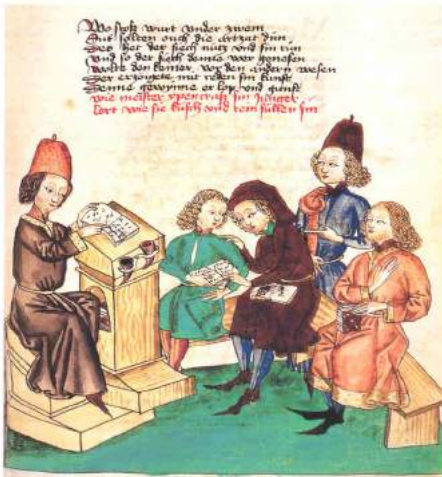 Wo stost wurt vnder zwein
Dut solten ouch die artzat din
Des het der siech nutz vnd sin
vnd so der siech danne wer genesen
wolte den keiner vor den andern wesen
Der erzögete mit reden sin kunst
Denne gewynne er lop vnd gunst
wie meister ypencras sin
lert wie sie küsch vnd rein süllen sin